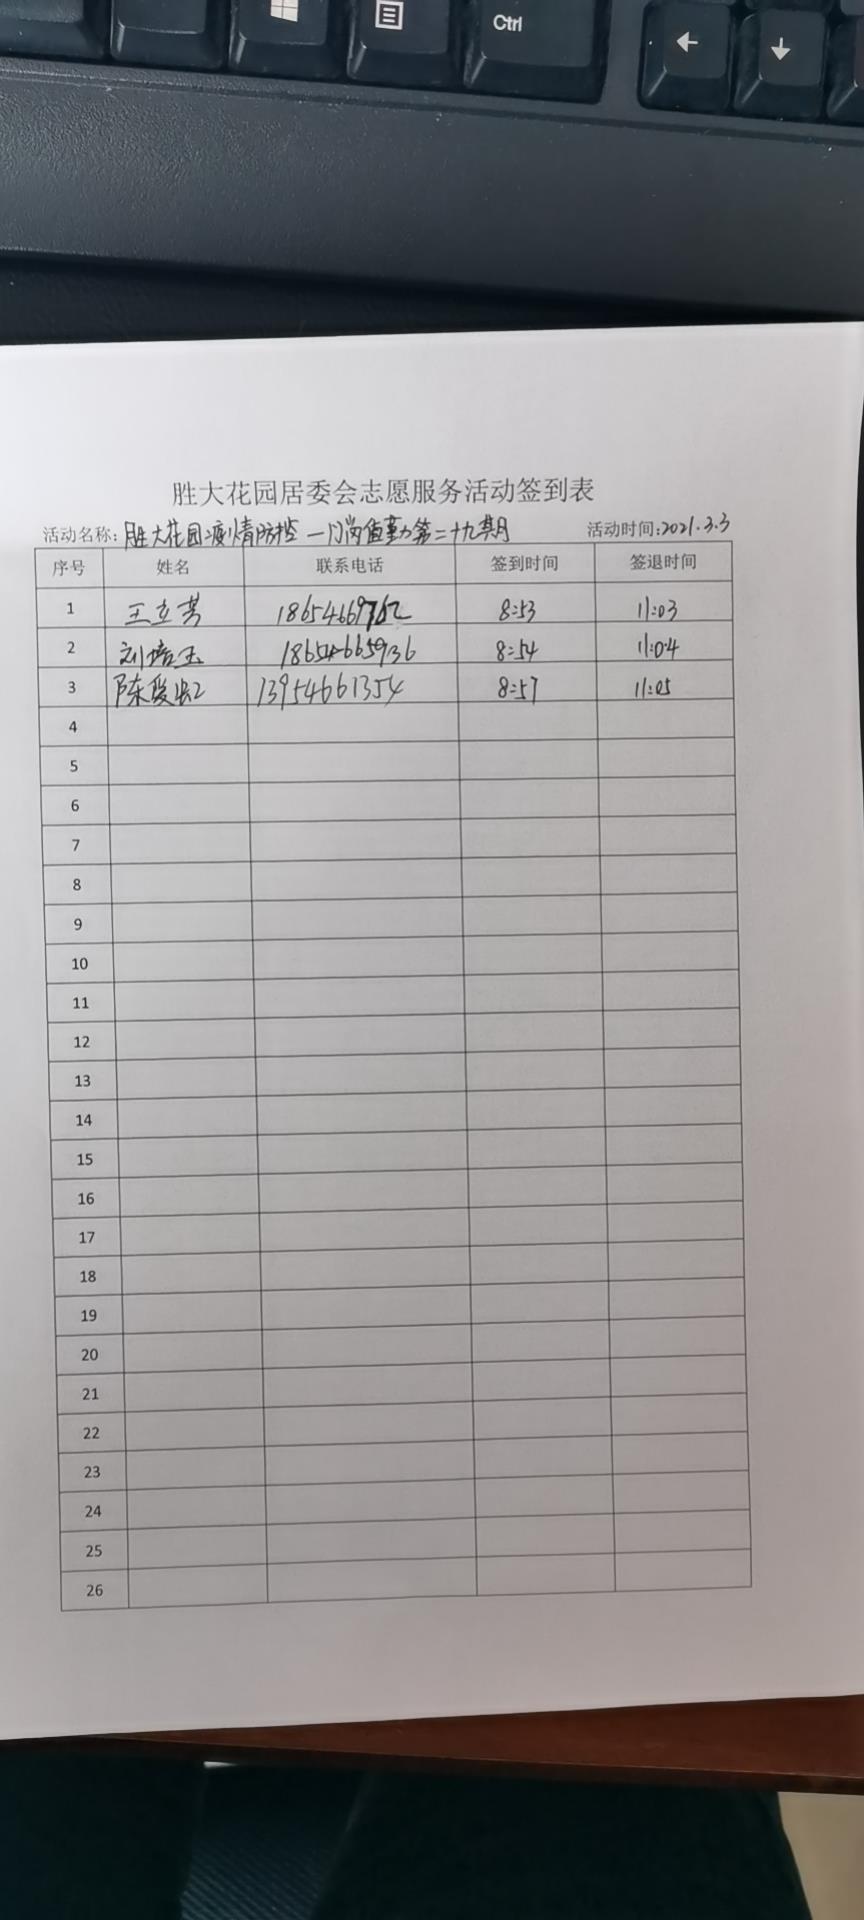 Ctrl
← ↓
胜大花园居委会志愿服务活动签到表
活动名称:胜大花园疫情防控一门岗值勤第二十九期 活动时间:2021.3.3
序号 姓名 联系电话 签到时间 签退时间
1 王立芳 8:53 11:03
2 刘培玉 18654665936 8:54 11:04
3 陈爱虹 13954661354 8:57 11:05
4
5
6
7
8
9
10
11
12
13
14
15
16
17
18
19
20
21
22
23
24
25
26